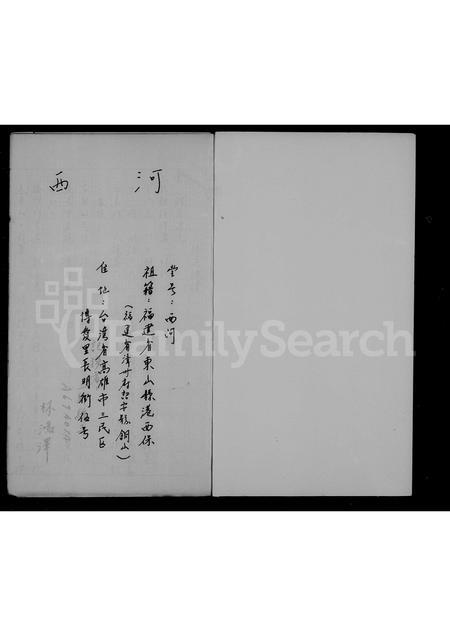 西 河
堂号:西河
祖籍:福建省東山縣港西保
(福建省漳州府詔安縣銅山)
住地:台灣省高雄市三民区
博愛里長明街伍号
林
澤
FamilySearch